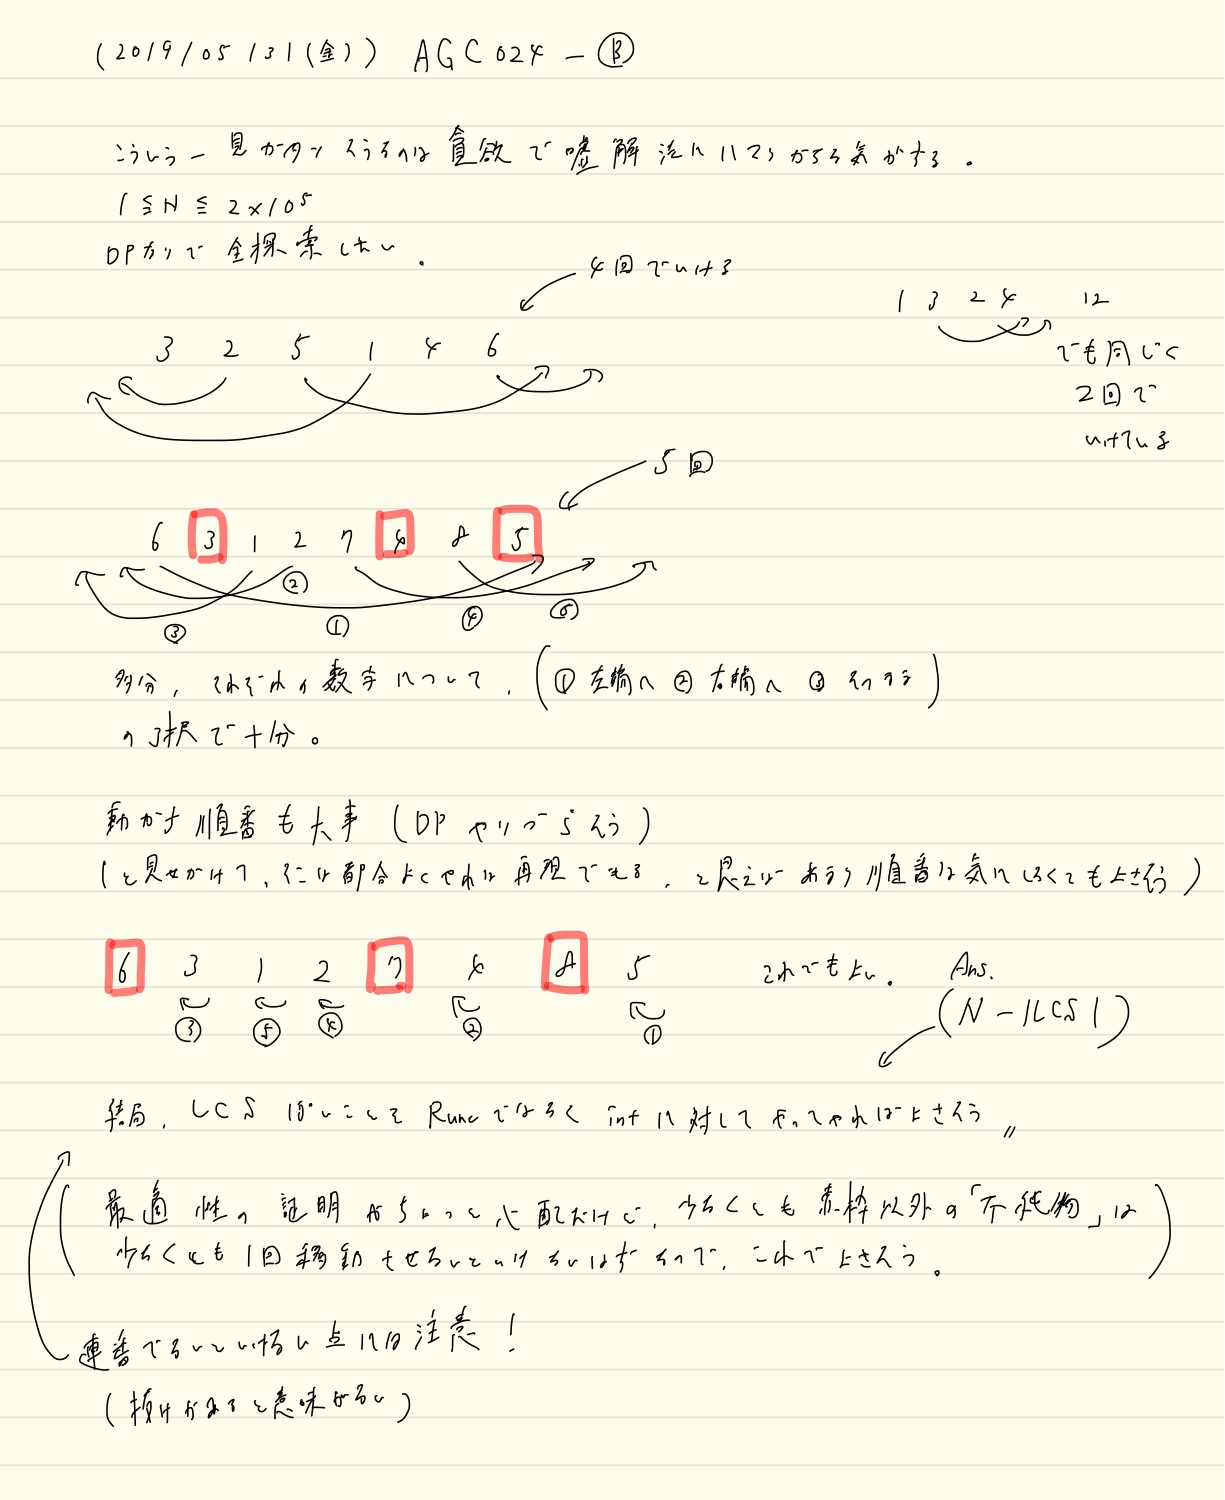 (2019/05/31(金)) AGC024-Ⓑ
こういう一見カンタンそうなのは貪欲で嘘解法にハマりがちな気がする。
1≦N≦2×10⁵
DPカリで全探索したい。
4回でいける
1 3 2 4 12
でも同じく
2回で
いけている
3 2 5 1 4 6
5回
6 3 1 2 7 4 8 5
② ③ ① ④ ⑤
多分, それぞれの数字について, (① 左端へ ② 右端へ ③ そのまま)
の3択で十分。
動かす順番も大事 (DP やりづらそう)
(と見せかけて, そこは都合よくやれば再現できる, と思えばあまり順番は気にしなくてもよさそう)
6 3 1 2 7 4 8 5 これでもよい。 Ans.
③ ⑤ ④ ② ①
(N-|LCS|)
結局, LCSぽいことを Rune ではなく int に対してやってやればよさそう〃
(最適性の証明がちょっと心配だけど, 少なくとも赤枠以外の「不純物」は
少なくとも1回移動させないといけないはずなので, これでよさそう。)
連番でないといけない点には注意!
(抜けがあると意味がない)